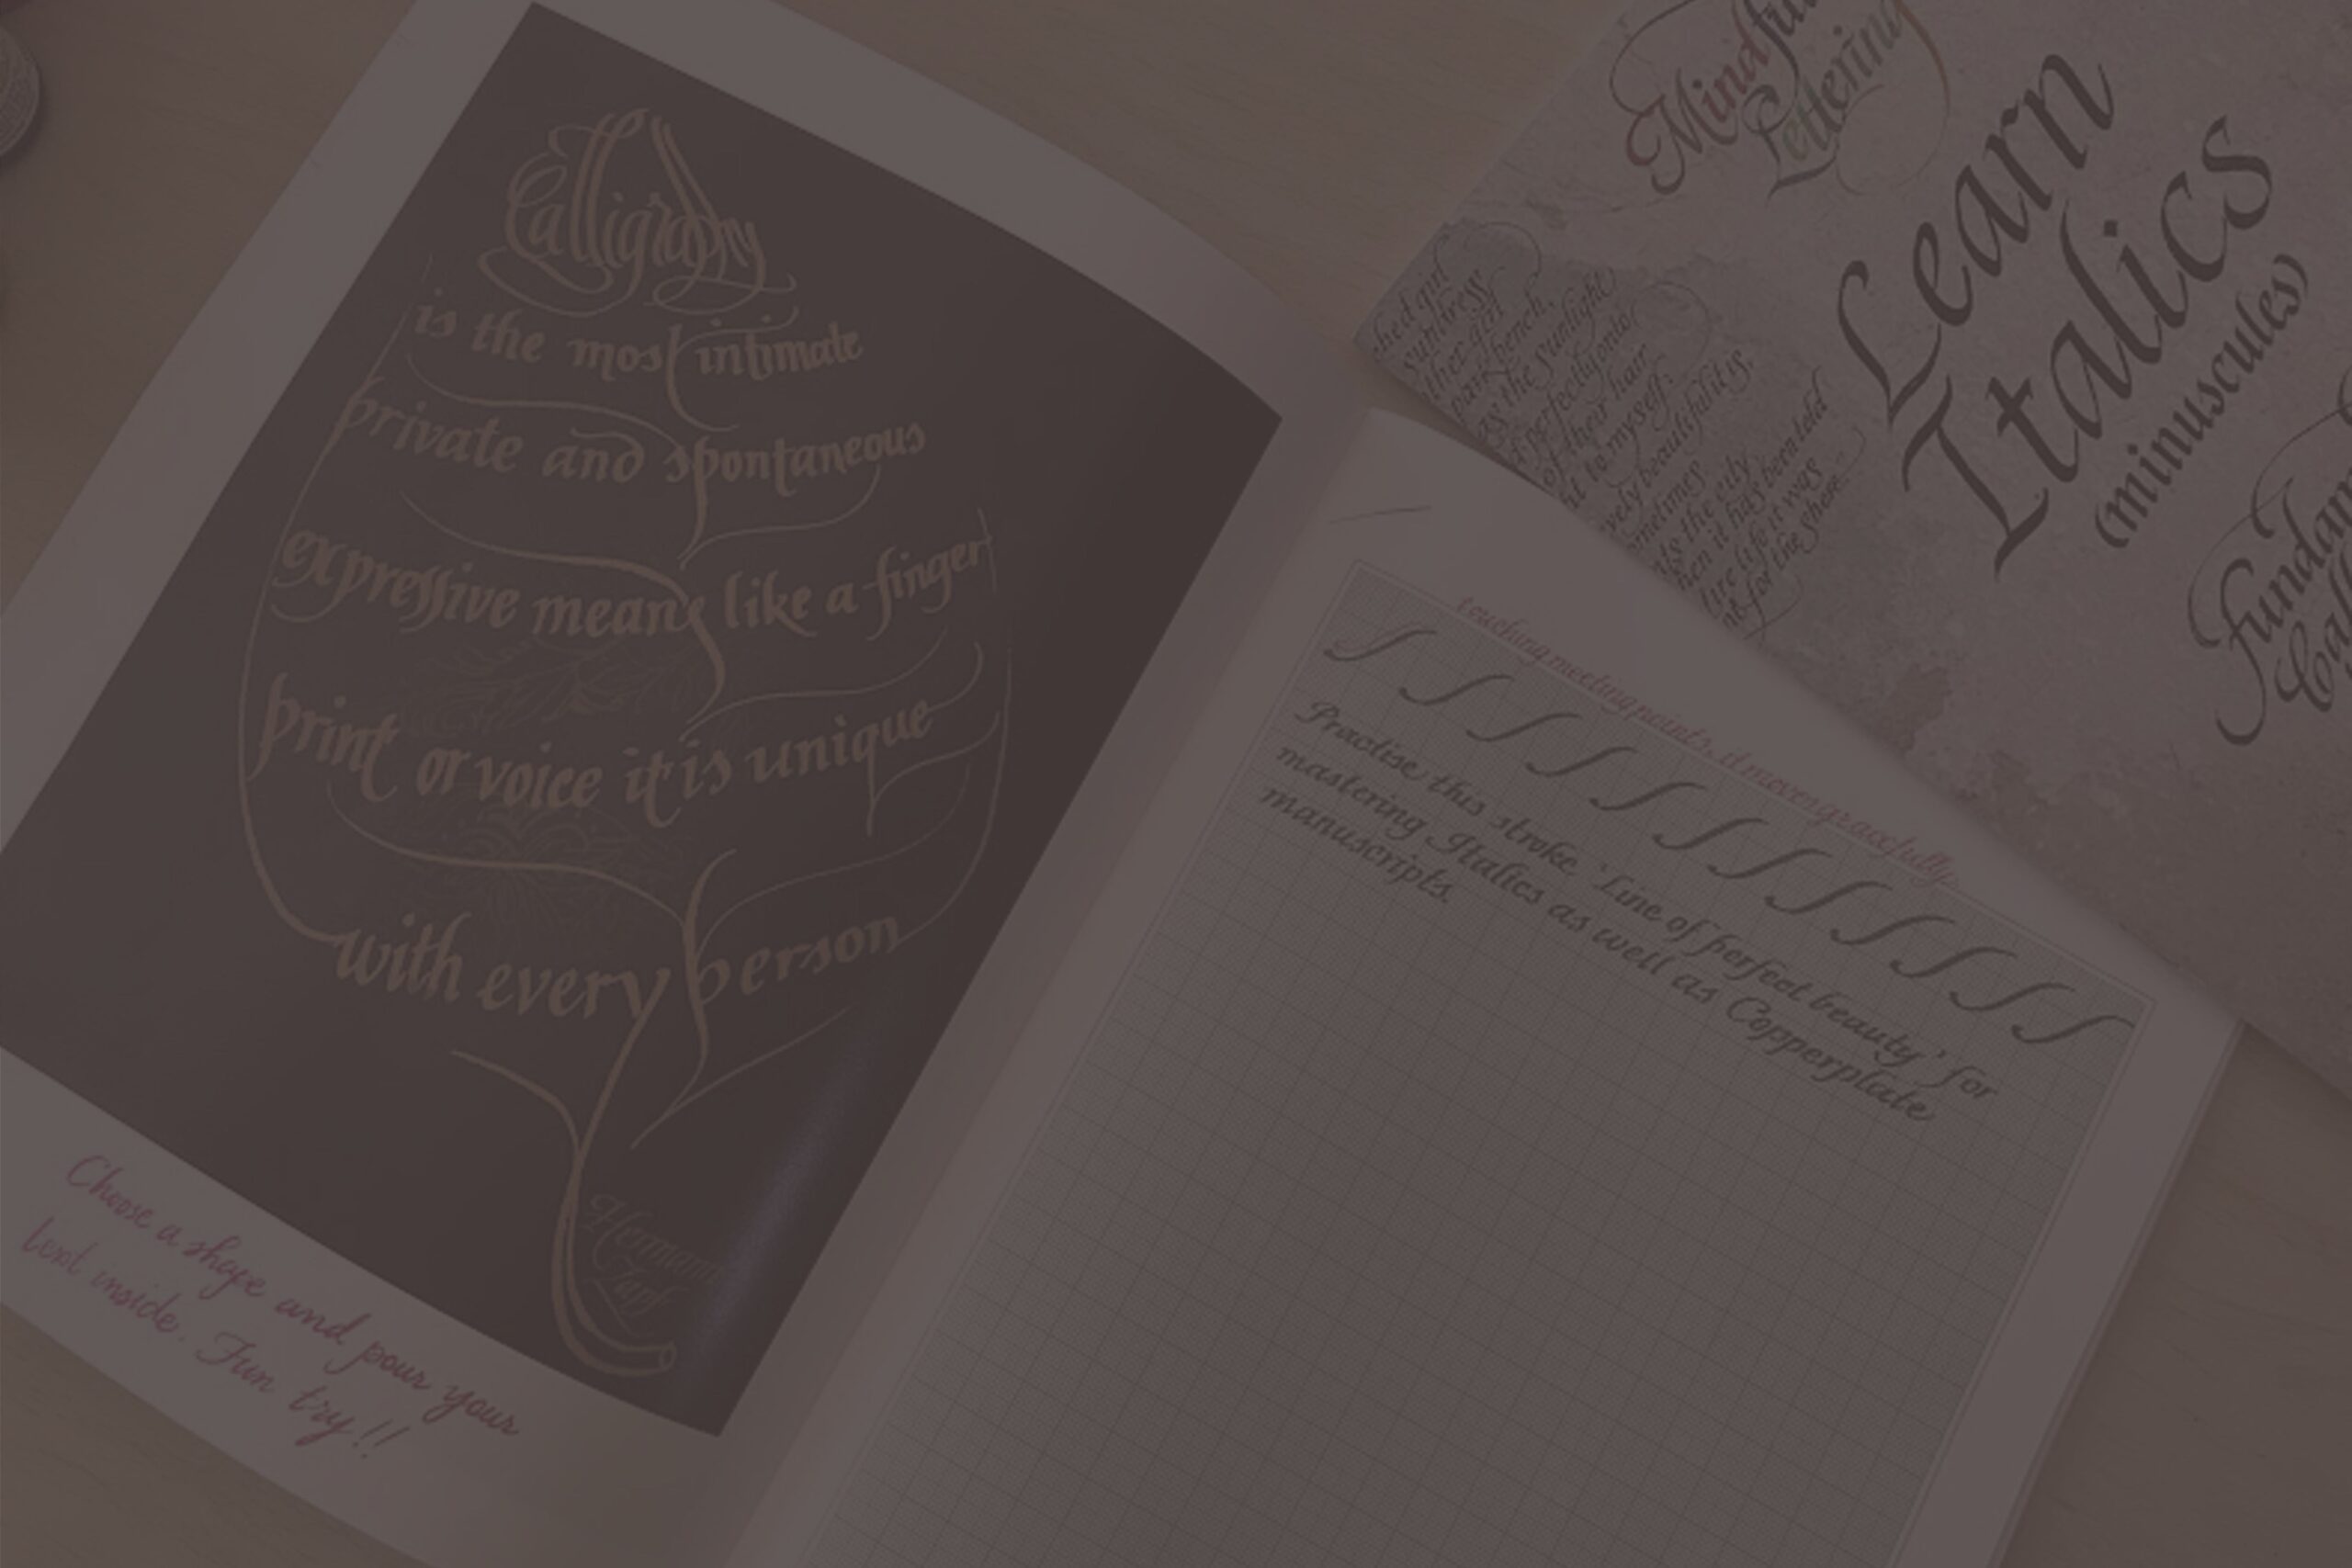 Calligraphy
is the most intimate
private and spontaneous
expressive means like a finger
print or voice it is unique
with every person
Hermann
Zapf
Choose a shape and pour your
text inside. Fun try!!
touching meeting points, it moves gracefully
Practise this stroke 'Line of perfect beauty' for
mastering Italics as well as Copperplate
manuscripts.
Mindful
Lettering
Learn
Italics
(minuscules)
sundress
park bench.
as the sunlight
of their hair
to myself.
beautiful it is.
it has been told
it was
for the